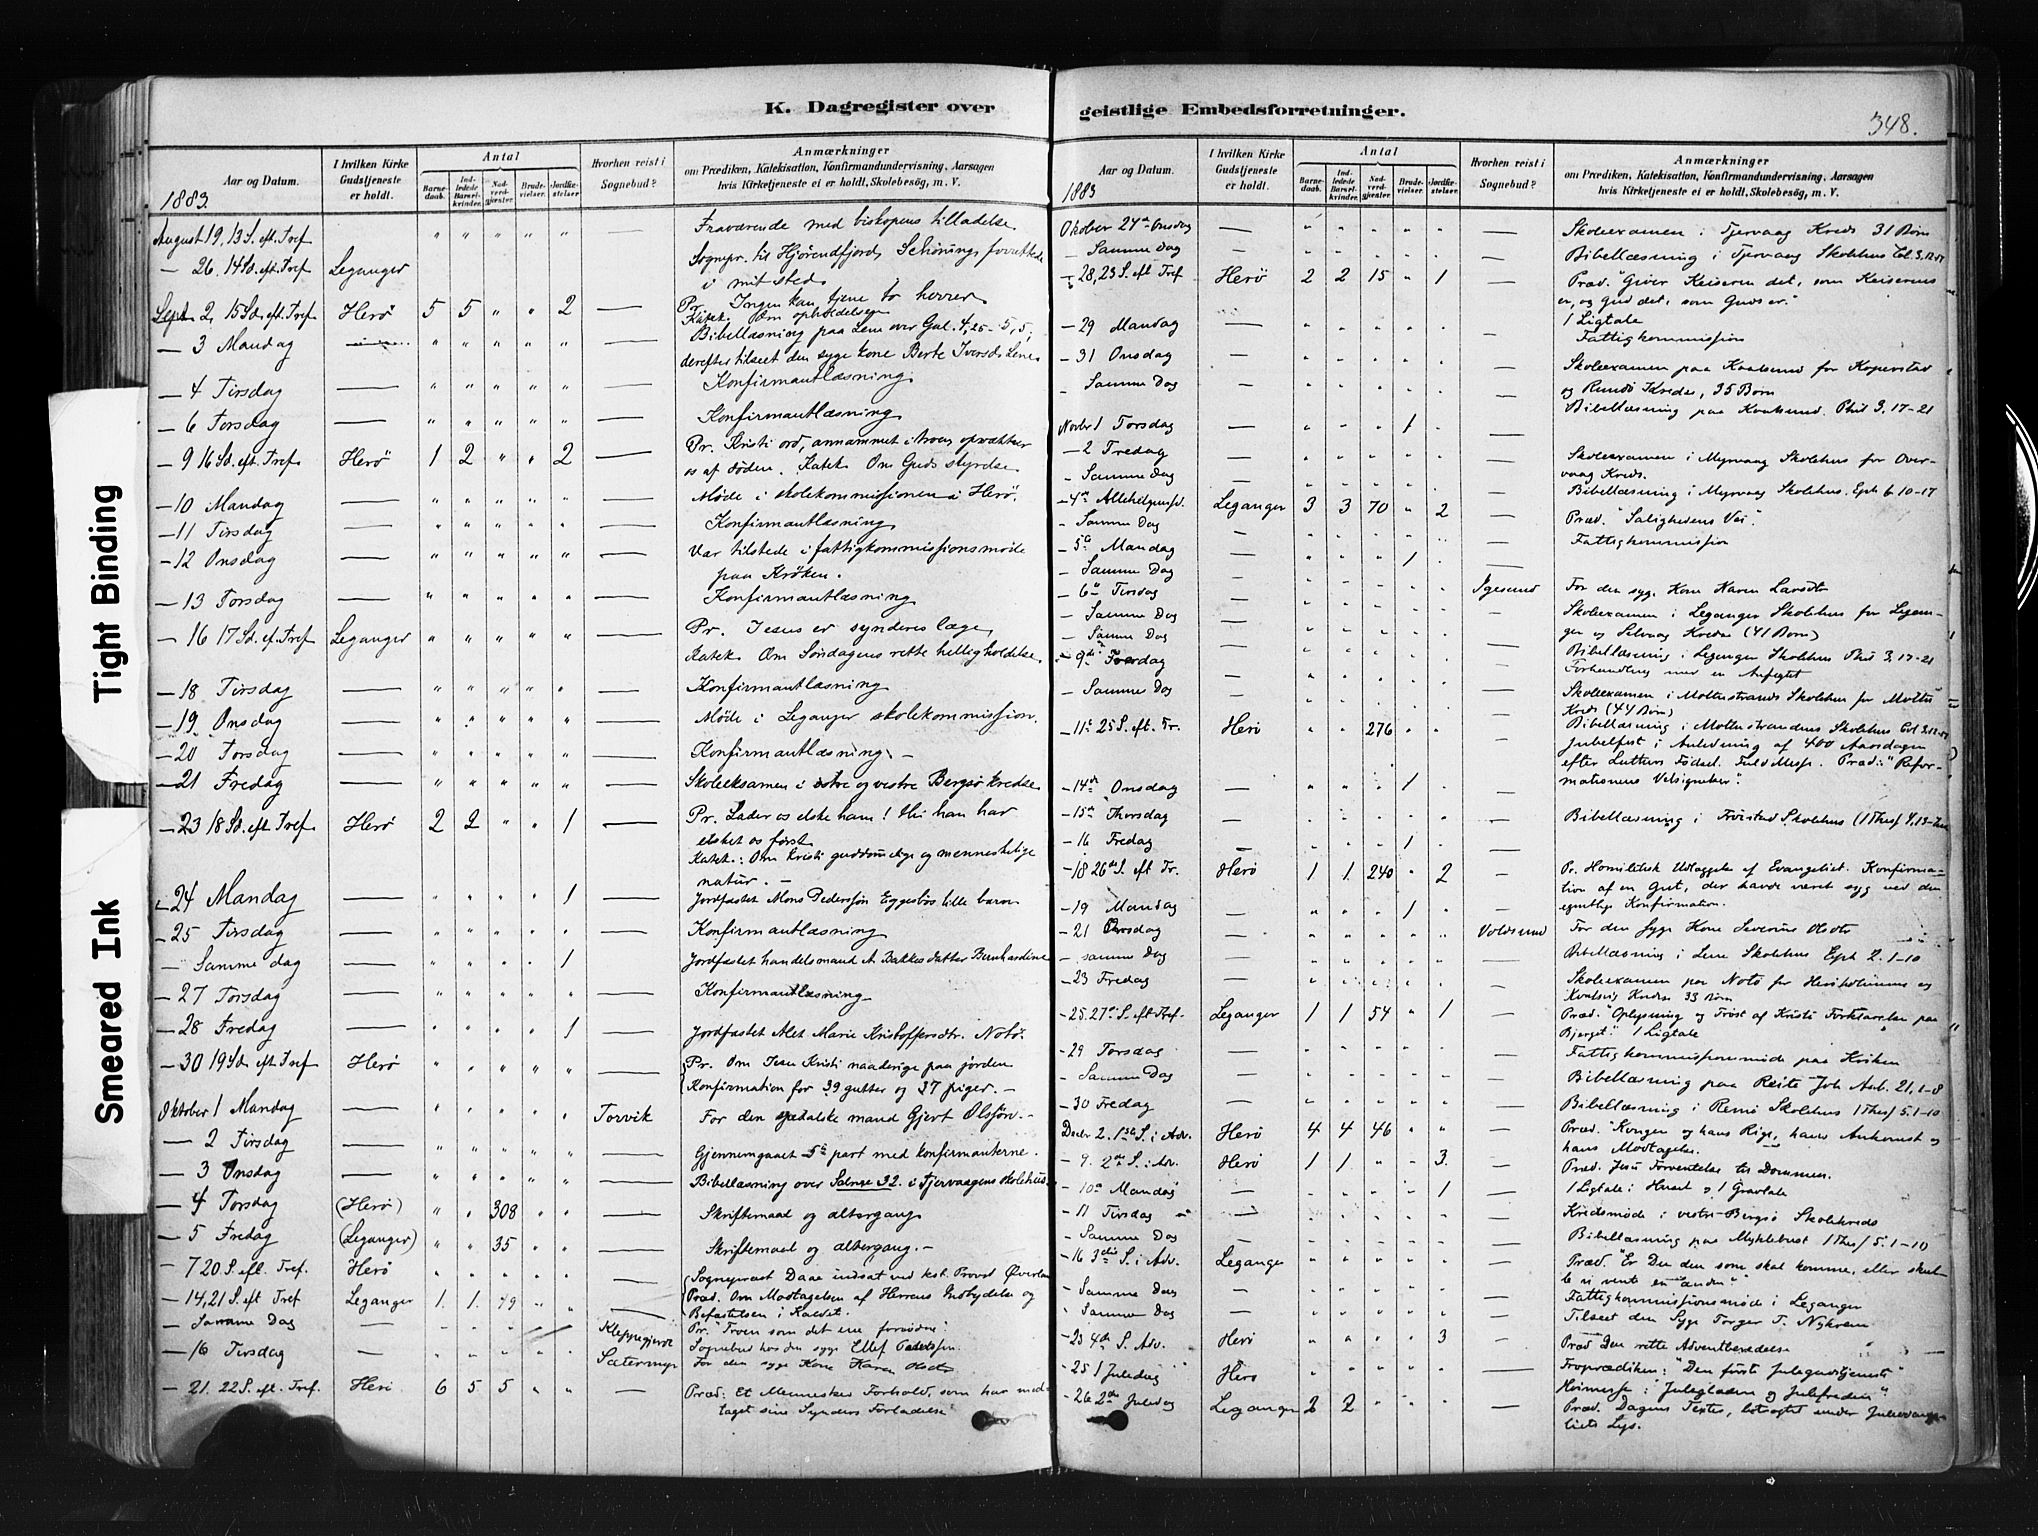 K. Dagregister over
Aar og Datum.
I hvilken Kirke Gudstjeneste er holdt.
Antal
Barnedaab.
Indledede Barselkvinder.
Nadverdgjester.
Brudevielser.
Jordfæstelser.
Hvorhen reist i Sognebud?
Anmærkninger
om Prædiken, Katekisation, Konfirmandundervisning, Aarsagen
hvis Kirketjeneste ei er holdt, Skolebesøg, m. V.
1883.
August 19, 13 S. eft. Tref " " " " " Fraværende med biskopens tilladelse.
— 26. 14 Sd. eft. Tref Leganger Sognepr. til Hjørendfjord, Schøning, forrettede
i mit sted.
Sept. 2, 15 Sd. eft. Tref Herø 5 5 " " 2 — Pr. Ingen kan tjene to herrer
Katek. Om opholdelsen
— 3 Mandag — " " " " " — Bibellæsning paa Lene over Gal. 4,25-5,5,
derefter tilseet den syge kone Berte Iversd. Lene
— 4 Tirsdag — " " " " " — Konfirmantlæsning.
— 6 Torsdag — " " " " " — Konfirmantlæsning
— 9 16 Sd. eft. Tref Herø 1 2 " " 2 — Pr. Kristi ord, annammet i troen opvækker
os af døden. Katek. Om Guds styrelse
— 10 Mandag — " " " " " — Møde i skolekommissionen i Herø.
— 11 Tirsdag — " " " " " — Konfirmantlæsning
— 12 Onsdag — " " " " " — Var tilstede i fattigkommissionsmøde
paa Krøken.
— 13 Torsdag — " " " " " — Konfirmantlæsning
— 16 17 Sd. ef. Tref Leganger " " " " " — Pr. Jesus er synderes læge,
Katek. Om Søndagens rette helligholdelse.
— 18 Tirsdag — " " " " " — Konfirmantlæsning
— 19 Onsdag — " " " " " — Møde i Leganger skolekommission.
— 20 Torsdag — " " " " " — Konfirmantlæsning. —
— 21 Fredag — " " " " " — Skoleeksamen i østre og vestre Bergsø kredse
— 23 18 Sd. eft. Tref Herø 2 2 " " 1 — Pr. Lader os elske ham! Thi han har
elsket os først
Katek.: Om Kristi guddommelige og menneskelige
natur. —
— 24 Mandag — " " " " 1 — Jordfæstet Mons Pedersøn Eggesbøs lille barn
— 25 Tirsdag — " " " " " — Konfirmantlæsning
— Samme dag — " " " " 1 — Jordfæstet handelsmand A. Bakkes datter Bernhardine
— 27 Torsdag — " " " " " — Konfirmantlæsning
— 28 Fredag — " " " " 1 — Jordfæstet Alet Marie Kristoffersdtr. Notø.
— 30 19 Sd. eft. Tref Herø " " " " " — Pr. Om Jesu Kristi naaderige paa jorden
Konfirmation for 39 gutter og 37 piger. —
Oktober 1 Mandag — " " " " " Torvik For den spedalske mand Gjert Olssøn. —
— 2 Tirsdag — " " " " " — Gjennemgaaet 5te part med konfirmanterne.
— 3 Onsdag — " " " " " — Bibellæsning over Salme 32. i Tjervaagens skolehus.
— 4 Torsdag (Herø) " " 308 " " — Skriftemaal og altergang
— 5 Fredag (Leganger) " " 35 " " — Skriftemaal og altergang. —
— 7 20 S. eft. Tref. Herø " " " " " — Sognepræst Daae indsat ved kst. Provst Øverland
— 14, 21 S. eft Tref Leganger 1. 1. 49 " " — Præd. Om Modtagelsen af Herrens Indbydelse og
Befæstelsen i Kaldet.
— Samme Dag — " " " " " Kleppegjerde Pr. "Troen som det ene fornødne"
Sognebud hos den syge Ellef
— 16 Tirsdag — " " " " " Sætermyr For den syge Kone Karen
— 21. 22 S. eft. Tref. Herø 6 5 5 " " — Præd: Et Menneskes Forhold, som har mod-
taget sine Synders Forladelse
geistlige Embedsforretninger.
348.
Aar og Datum.
I hvilken Kirke Gudstjeneste er holdt.
Antal
Barnedaab.
Indledede Barselkvinder.
Nadverdgjester.
Brudevielser.
Jordfæstelser.
Hvorhen reist i Sognebud?
Anmærkninger
om Prædiken, Katekisation, Konfirmandundervisning, Aarsagen
hvis Kirketjeneste ei er holdt, Skolebesøg, m. V.
1883
Oktober 24de Onsdag — " " " " " — Skoleexamen i Tjervaag Kreds 31 Børn
Samme Dag — " " " " " — Bibellæsning i Tjervaag Skolehus Col. 3,
— 28, 23 S. eft Tref Herø 2 2 15 " 1 — Præd. "Giver Keiseren det, som Keiserens
er, og Gud det, som Guds er."
1 Ligtale
— 29 Mandag — " " " " " — Fattigkommission
— 31 Onsdag — " " " " " — Skoleexamen paa Kvalsund for Koperstad
og Rundø Kredse, 35 Børn
— Samme Dag — " " " " " — Bibellæsning paa Kvalsund. Phil 3. 17-21
Novbr 1 Torsdag — " " " 1 " —
— 2 Fredag — " " " " " — Skoleexamen i Myrvaag Skolehus for Over-
vaag Kreds.
— Samme Dag — " " " " " — Bibellæsning i Myrvaag Skolehus. Eph 6. 10-17
— 4de Allehelgensd. Leganger 3 3 70 " 2 — Præd. "Salighedens Vei".
— Samme Dag — " " " " " — Fattigkommission
— 5te Mandag — " " " 1 " —
— Samme Dag — " " " " " Igesund For den syge Kone Karen Larsdtr
— 6te Tirsdag — " " " " " — Skoleexamen i Leganger Skolehus for Legan-
ger og Selvaag Kredse (41 Børn)
— Samme Dag — " " " " " — Bibellæsning i Leganger Skolehus Phil 3, 17-21
— Samme Dag — " " " " " — Forhandling med en
— 9de Fredag — " " " " " — Skoleexamen i Moltustrands Skolehus for Moltu
Kreds (44 Børn)
— Samme Dag — " " " " " — Bibellæsning i Moltustrandens Skolehus Col.
— 11te 25 S. eft. Tr. Herø " " 276 " " — Jubelfest i Anledning af 400 Aarsdagen
efter Luthers Fødsel. Fuld Messe. Præd: "Refor-
mationens Velsignelser".
— 14de Onsdag — " " " 1 " —
— 15de Thorsdag — " " " " " — Bibellæsning i Frøistad Skolehus (1 Thess 4, 13-
— 16 Fredag — " " " 1 " —
— 18 26de S. eft Tr. Herø 1 1 240 " 2 — Pr. Homiletisk Udlæggelse af Evangeliet. Konfirma-
tion af en Gut, der havde været syg ved den
egentlige Konfirmation.
— 19 Mandag — " " " 1 " —
— 21 Onsdag — " " " " " Voldsund For den syge Kone Severine Olsdtr
— samme Dag — " " " " " — Bibellæsning i Lene Skolehus Eph 2. 1-10
— 23 Fredag — " " " " " — Skoleexamen paa Notø for Herøholmens og
Kvalsvig Kredse 33 Børn
— 25. 27de S. eft Tref. Leganger 1 1 54 " 1 — Præd. "Oplysning og Trøst af Kristi Forklarelse paa
Bjerget." 1 Ligtale
— 29 Torsdag — " " " " " — Fattigkommissionsmøde paa Kroken
— Samme Dag — " " " " " — Bibellæsning paa Reite Joh. Aab. 21, 1-8
— 30 Fredag — " " " " " — Bibellæsning i Remø Skolehus 1 Thess 5. 1-10
Decbr 2. 1ste S. i Adv. Herø 4 4 46 " " — Præd. "Kongen og hans Rige, hans Ankomst og
hans Modtagelse.
— 9. 2den S. i Adv. Herø 1 1 " " 3. — Præd. Jesu Forventelse til Dommen.
— 10de Mandag — " " " " 1 — 1 Ligtale i Huset og 1 Gravtale
— 11 Tirsdag — " " " " " — Kredsmøde i vestre Bergsø Skolekreds
— Samme Dag — " " " " " — Bibellæsning paa Myklebust 1 Thess 5. 1-10
— 16 3die S. i Adv. Leganger " " " " " — Præd. "Er Du den som skal komme, eller skul-
le vi vente en anden"
— Samme Dag — " " " " " — Fattigkommissionsmøde i Leganger
— Samme Dag — " " " " " — Tilseet den Syge Torger T. Nykrem
— 23 4de S. Adv. Herø " " " " 3 — Præd Den rette Adventberedelse
— 25 1 Juledag Herø " " " " " — Froprædiken: "Den første Julegudstjeneste"
Høimesse: Juleglæden og Julefreden"
— 26 2den Juledag Leganger 2 2 " " " — Præd. Dagens Text, betragtet under Juleevange-
liets Lys.
Tight Binding
Smeared Ink